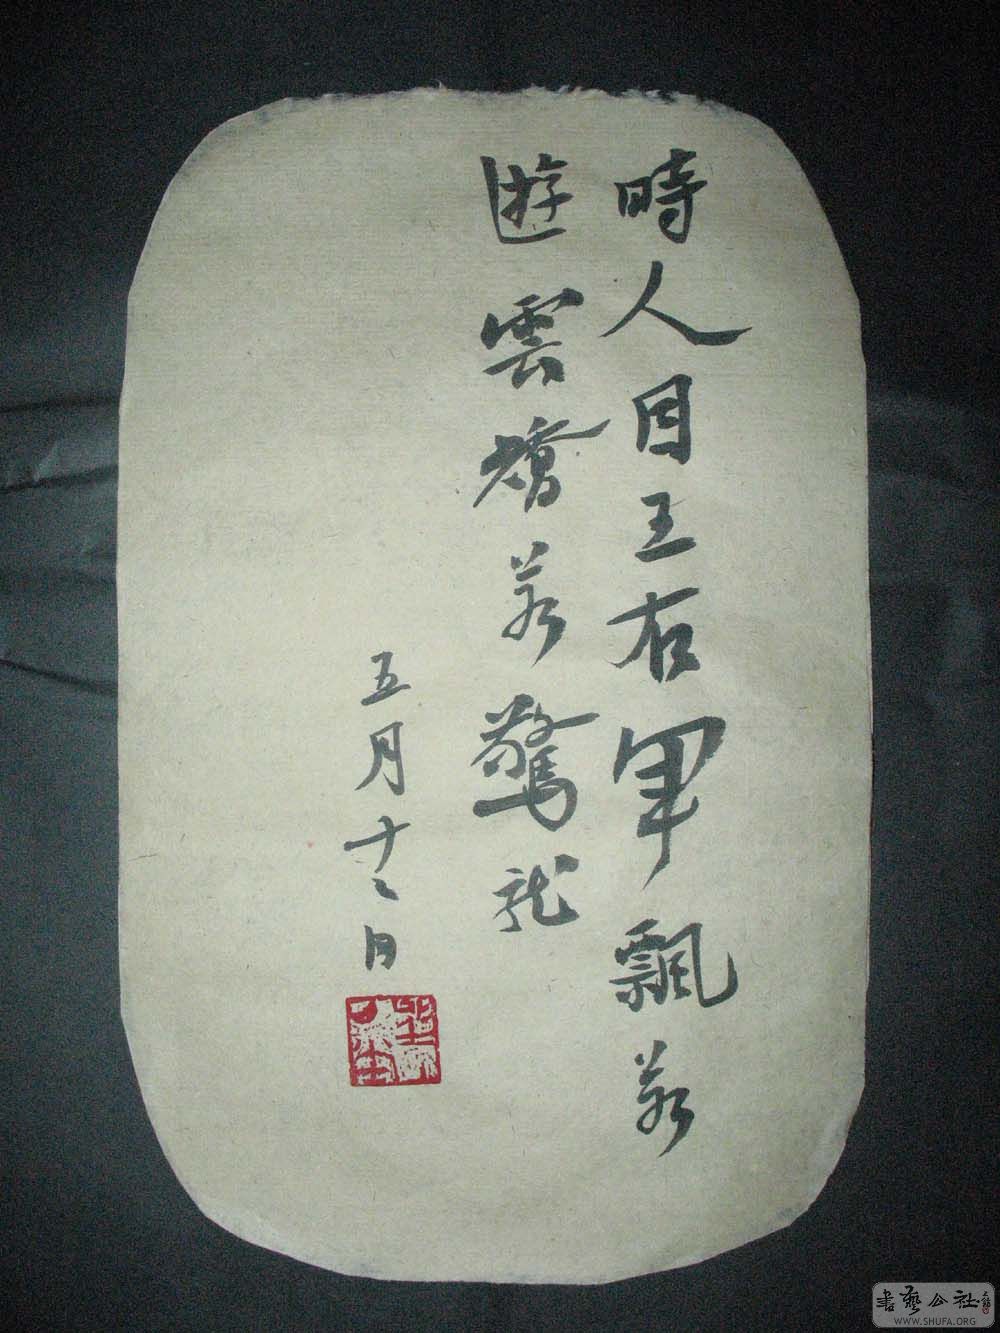 時人目王右軍飄若
遊雲矯若驚龙
五月十二日
書藝公社
WWW.SHUFA.ORG